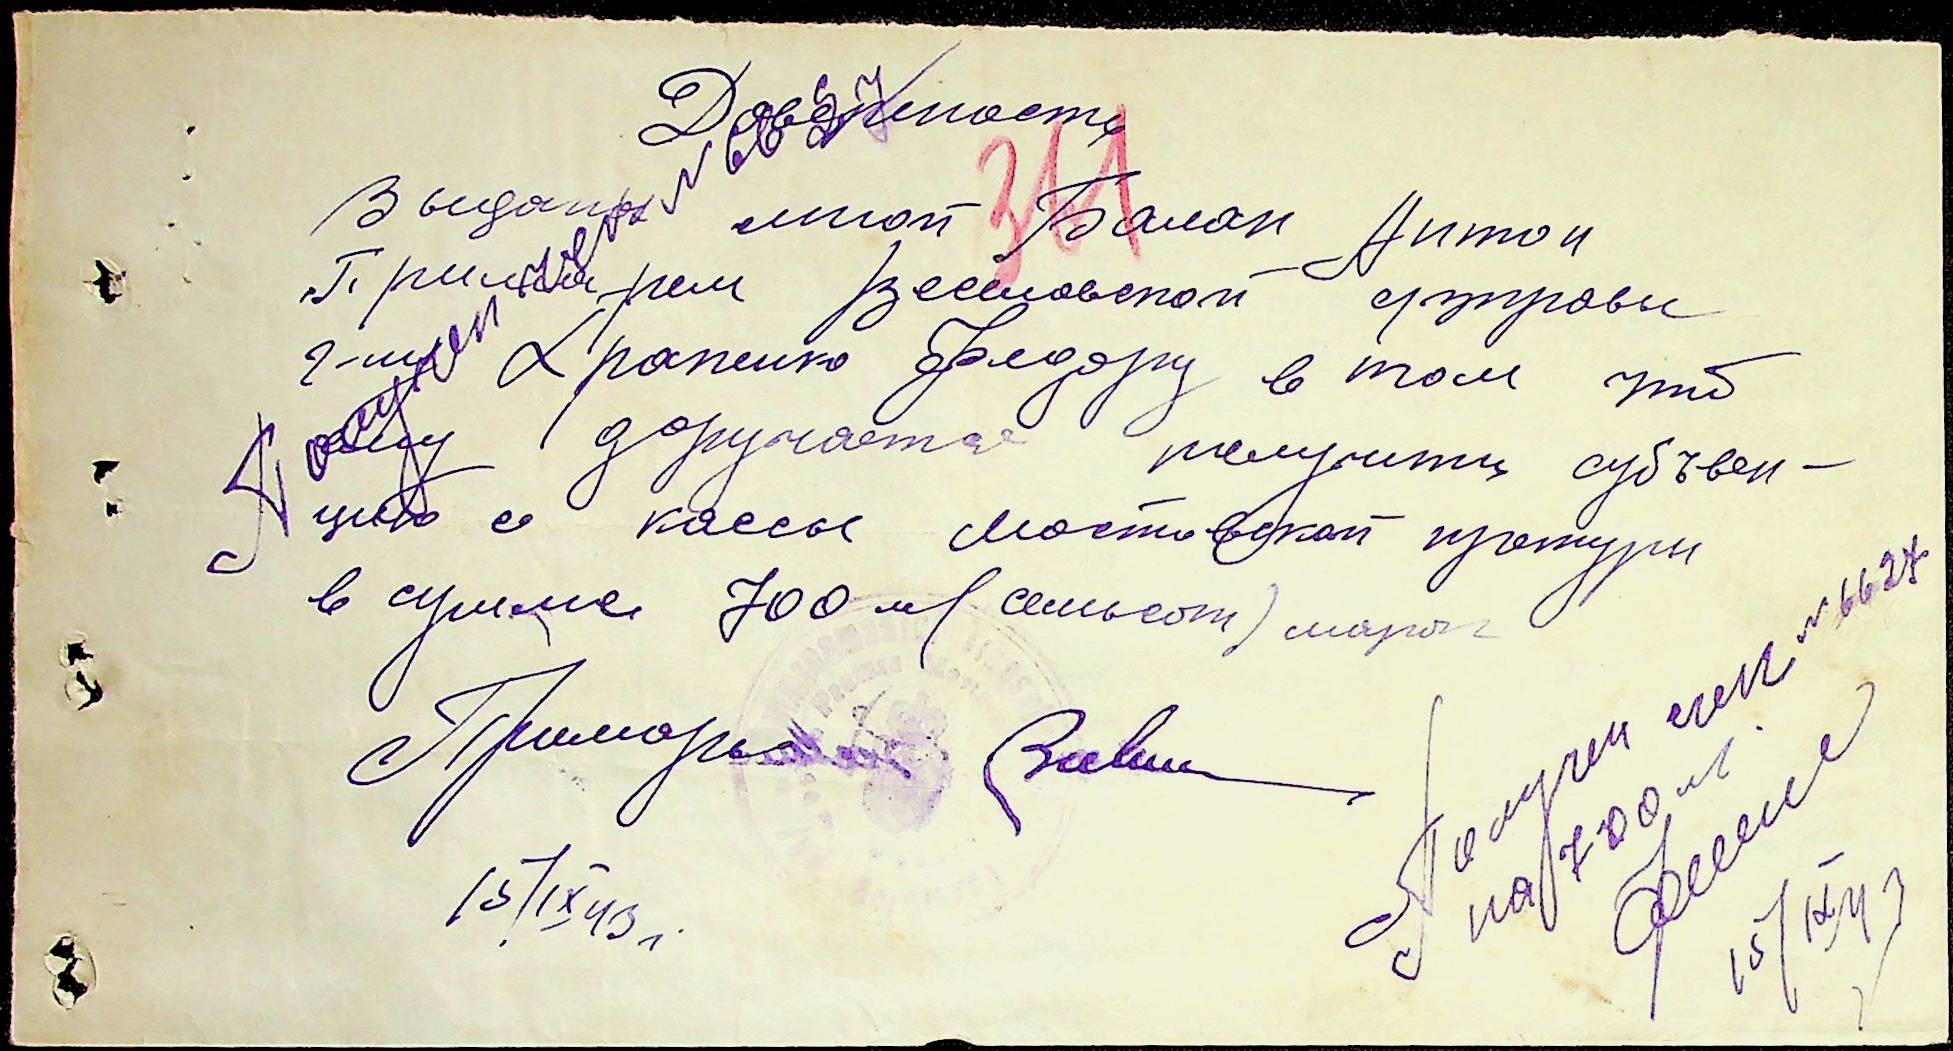 Доверенность
311
Выдана мной Балан Антон
Примарем Веселовской управы
г-ну Храпенко Федору в том что
ему доручается получить субъвен-
цию с кассы Мостовской претуры
в сумме 700 м (семьсот) марок
Примарь
15/IX 43 г.
Получен чек № 6627
Получен чек № 6627
на 700 м.
15/IX 43